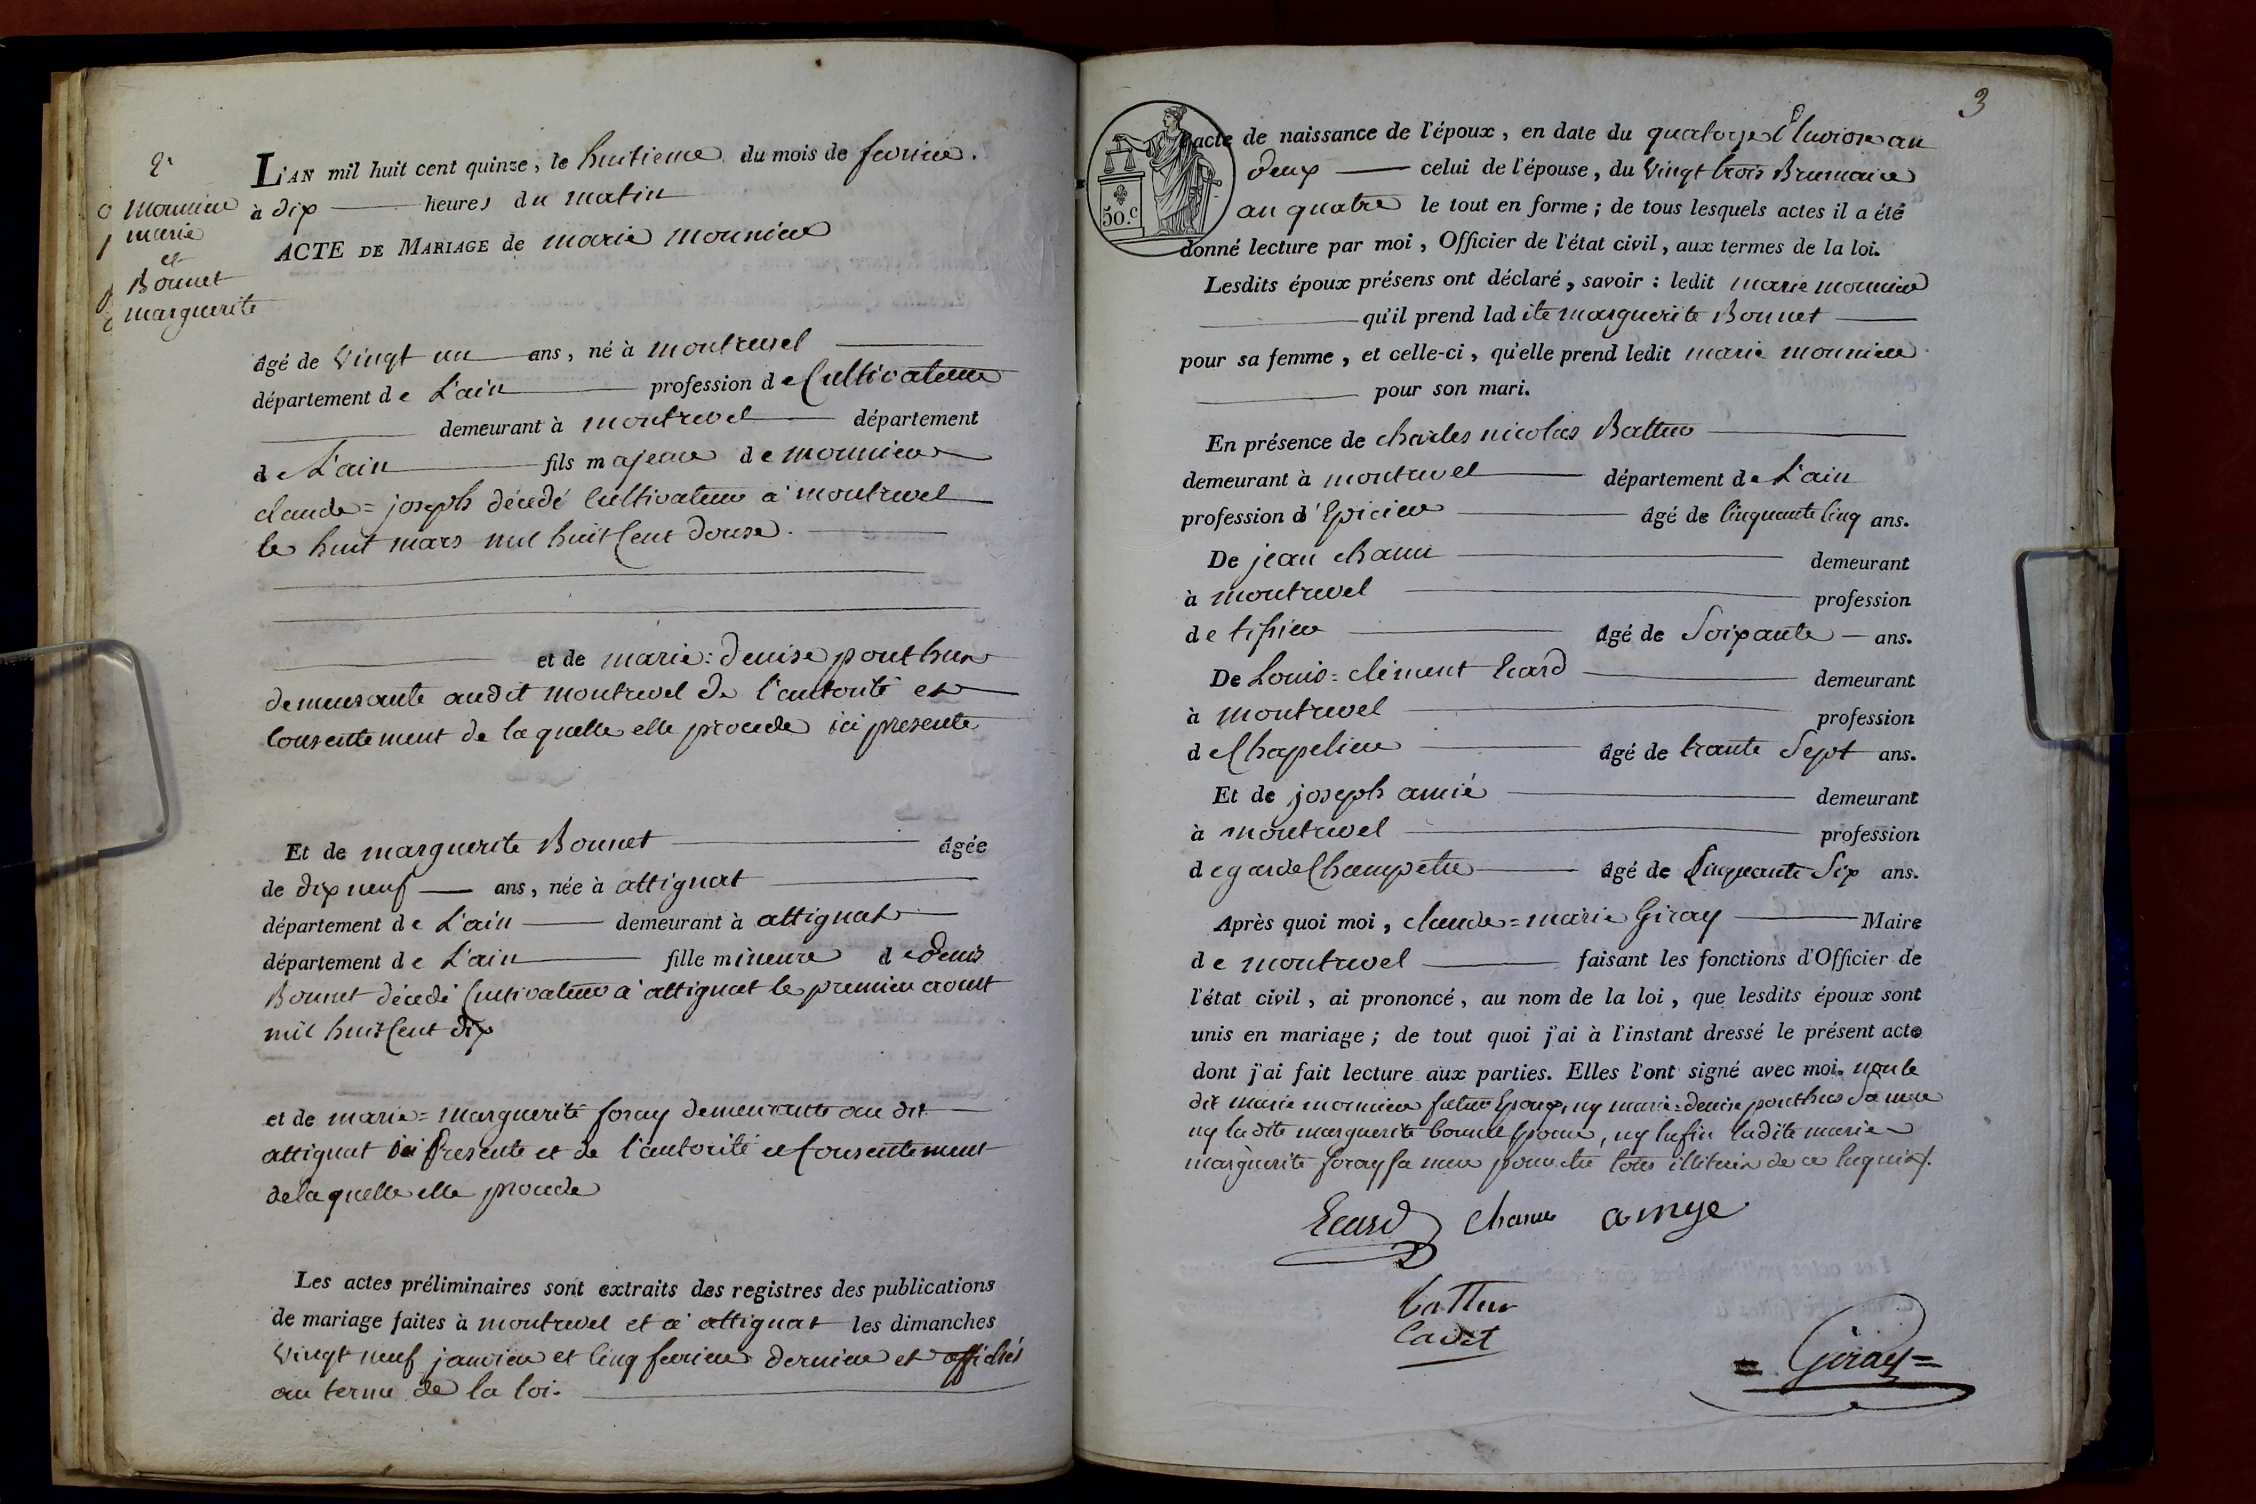 2.
mounier
marie
et
Bonnet
marguerite
L'AN mil huit cent quinze, le huitieme du mois de fevrier.
à dix heures du matin
ACTE DE MARIAGE de marie mounier
âgé de vingt un ans, né à montrevel
département de L'ain profession de Cultivateur
demeurant à montrevel département
de L'ain fils majeur de mounier
claude=joseph décédé Cultivateur à montrevel
le huit mars mil huit Cent douse.
et de marie=denise ponthus
demeurante audit montrevel de l'autorité et
Consentement de laquelle elle procede ici presente
Et de marguerite Bonnet âgée
de dix neuf ans, née à attignat
département de L'ain demeurant à attignat
département de L'ain fille mineure de denis
Bonnet décedé Cultivateur à attignat le premier aoust
mil huit Cent dix
et de marie=marguerite foray demeurante au dit
attignat ici Presente et de l'autorité et Consentement
de laquelle elle procede
Les actes préliminaires sont extraits des registres des publications
de mariage faites à montrevel et à attignat les dimanches
vingt neuf janvier et Cinq fevrier dernier et affichés
au terme de la loi.
3
50.c
acte de naissance de l'époux, en date du quatorze Pluviose an
deux celui de l'épouse, du vingt trois Brumaire
an quatre le tout en forme; de tous lesquels actes il a été
donné lecture par moi, Officier de l'état civil, aux termes de la loi.
Lesdits époux présens ont déclaré, savoir: ledit marie mounier
qu'il prend ladite marguerite Bonnet
pour sa femme, et celle-ci, qu'elle prend ledit marie mounier
pour son mari.
En présence de charles nicolas Battur
demeurant à montrevel département de L'ain
profession d'Epicier âgé de Cinquante Cinq ans.
De jean chanu demeurant
à montrevel profession
de tissier âgé de Soixante ans.
De Louis=clément Ecard demeurant
à montrevel profession
de Chapelier âgé de trante Sept ans.
Et de joseph amié demeurant
à montrevel profession
de garde Champetre âgé de Cinquante Six ans.
Après quoi moi, claude=marie Giray Maire
de montrevel faisant les fonctions d'Officier de
l'état civil, ai prononcé, au nom de la loi, que lesdits époux sont
unis en mariage; de tout quoi j'ai à l'instant dressé le présent acte
dont j'ai fait lecture aux parties. Elles l'ont signé avec moi. non le
dit marie mounier futur Epoux, ny marie=denise ponthus Sa mere
ny ladite marguerite bonnet Epouse, ny Enfin ladite marie
marguerite foray sa mere pour etre tous illiterés de ce Enquis.
Ecard chanu amye
battur
Cadet
Giray